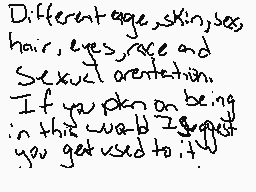 Different age, skin, sex,
hair, eyes, race and
sexual orentation.
If you plan on being
in this world I suggest
you get used to it